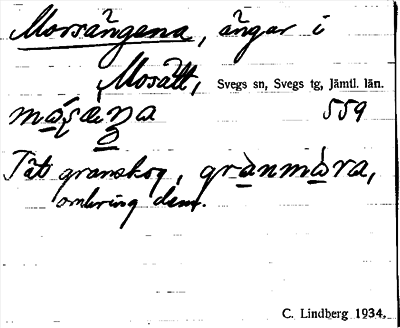 Morsängena, ängar i
Mosätt, Svegs sn, Svegs tg, Jämtl. län.
559
Tät granskog, granmåra,
omkring dem.
C. Lindberg 1934.